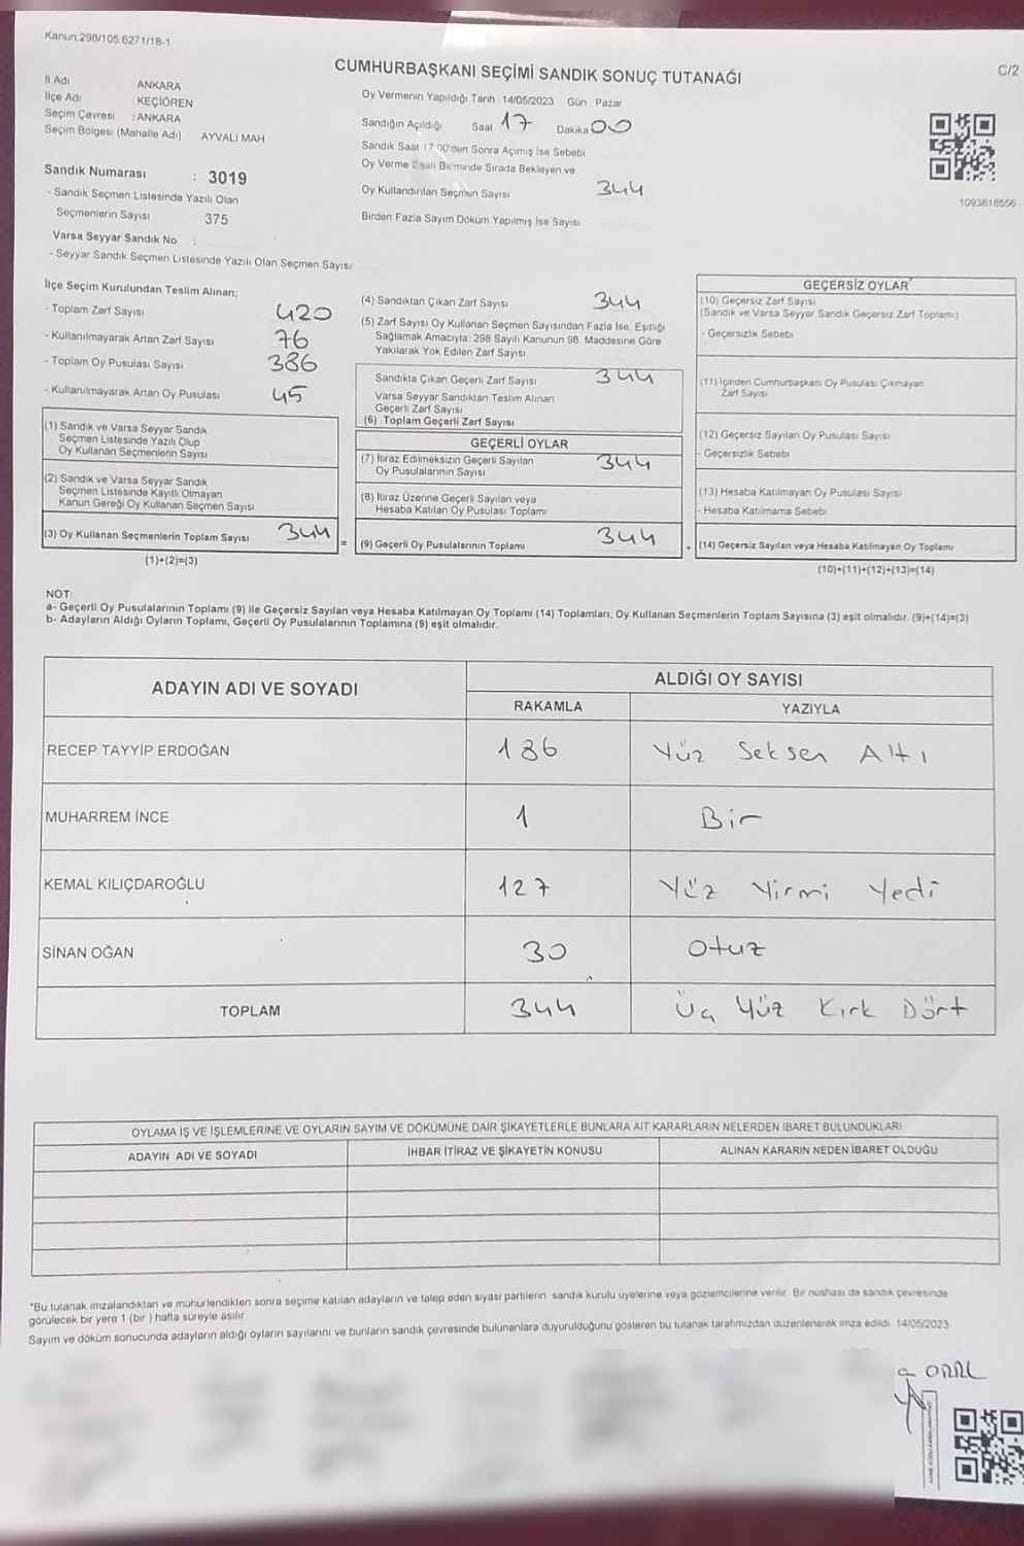 Kanun.298/105.6271/18-1
C/2
CUMHURBAŞKANI SEÇİMİ SANDIK SONUÇ TUTANAĞI
İl Adı : ANKARA
İlçe Adı : KEÇİÖREN
Seçim Çevresi : ANKARA
Seçim Bölgesi (Mahalle Adı) AYVALI MAH
Sandık Numarası : 3019
- Sandık Seçmen Listesinde Yazılı Olan
Seçmenlerin Sayısı 375
Varsa Seyyar Sandık No :
- Seyyar Sandık Seçmen Listesinde Yazılı Olan Seçmen Sayısı
Oy Vermenin Yapıldığı Tarih :14/05/2023 Gün : Pazar
Sandığın Açıldığı Saat 17 Dakika 00
Sandık Saat 17.00'den Sonra Açımış İse Sebebi
Oy Verme Saati Bitiminde Sırada Bekleyen ve
Oy Kullandırılan Seçmen Sayısı 344
Birden Fazla Sayım Döküm Yapılmış İse Sayısı
1093618556
İlçe Seçim Kurulundan Teslim Alınan;
- Toplam Zarf Sayısı 420
- Kullanılmayarak Artan Zarf Sayısı 76
- Toplam Oy Pusulası Sayısı 386
- Kullanılmayarak Artan Oy Pusulası 45
(1) Sandık ve Varsa Seyyar Sandık
Seçmen Listesinde Yazılı Olup
Oy Kullanan Seçmenlerin Sayısı
(2) Sandık ve Varsa Seyyar Sandık
Seçmen Listesinde Kayıtlı Olmayan
Kanun Gereği Oy Kullanan Seçmen Sayısı
(3) Oy Kullanan Seçmenlerin Toplam Sayısı 344 =
(1)+(2)=(3)
(4) Sandıktan Çıkan Zarf Sayısı 344
(5) Zarf Sayısı Oy Kullanan Seçmen Sayısından Fazla İse, Eşitliği
Sağlamak Amacıyla, 298 Sayılı Kanunun 98. Maddesine Göre
Yakılarak Yok Edilen Zarf Sayısı
Sandıkta Çıkan Geçerli Zarf Sayısı 344
Varsa Seyyar Sandıktan Teslim Alınan
Geçerli Zarf Sayısı
(6) Toplam Geçerli Zarf Sayısı
GEÇERLİ OYLAR
(7) İtiraz Edilmeksizin Geçerli Sayılan 344
Oy Pusulalarının Sayısı
(8) İtiraz Üzerine Geçerli Sayılan veya
Hesaba Katılan Oy Pusulası Toplamı
(9) Geçerli Oy Pusulalarının Toplamı 344
GEÇERSİZ OYLAR
(10) Geçersiz Zarf Sayısı
(Sandık ve Varsa Seyyar Sandık Geçersiz Zarf Toplamı)
- Geçersizlik Sebebi
(11) İçinden Cumhurbaşkanı Oy Pusulası Çıkmayan
Zarf Sayısı
(12) Geçersiz Sayılan Oy Pusulası Sayısı
- Geçersizlik Sebebi
(13) Hesaba Katılmayan Oy Pusulası Sayısı
- Hesaba Katılmama Sebebi
+ (14) Geçersiz Sayılan veya Hesaba Katılmayan Oy Toplamı
(10)+(11)+(12)+(13)=(14)
NOT:
a- Geçerli Oy Pusulalarının Toplamı (9) ile Geçersiz Sayılan veya Hesaba Katılmayan Oy Toplamı (14) Toplamları, Oy Kullanan Seçmenlerin Toplam Sayısına (3) eşit olmalıdır. (9)+(14)=(3)
b- Adayların Aldığı Oyların Toplamı, Geçerli Oy Pusulalarının Toplamına (9) eşit olmalıdır.
ADAYIN ADI VE SOYADI
ALDIĞI OY SAYISI
RAKAMLA YAZIYLA
RECEP TAYYİP ERDOĞAN 186 Yüz Seksen Altı
MUHARREM İNCE 1 Bir
KEMAL KILIÇDAROĞLU 127 Yüz Yirmi Yedi
SİNAN OĞAN 30 Otuz
TOPLAM 344 Üç Yüz Kırk Dört
OYLAMA İŞ VE İŞLEMLERİNE VE OYLARIN SAYIM VE DÖKÜMÜNE DAİR ŞİKAYETLERLE BUNLARA AİT KARARLARIN NELERDEN İBARET BULUNDUKLARI
ADAYIN ADI VE SOYADI İHBAR İTİRAZ VE ŞİKAYETİN KONUSU ALINAN KARARIN NEDEN İBARET OLDUĞU
*Bu tutanak imzalandıktan ve mühürlendikten sonra seçime katılan adayların ve talep eden siyasi partilerin sandık kurulu üyelerine veya gözlemcilerine verilir. Bir nüshası da sandık çevresinde
görülecek bir yere 1 (bir ) hafta süreyle asılır.
Sayım ve döküm sonucunda adayların aldığı oyların sayılarını ve bunların sandık çevresinde bulunanlara duyurulduğunu gösteren bu tutanak tarafımızdan düzenlenerek imza edildi. 14/05/2023